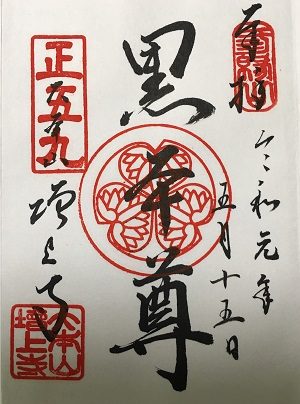 奉拝
令和元年
五月十五日
黒本尊
正五九
増上寺
大本山
増上寺